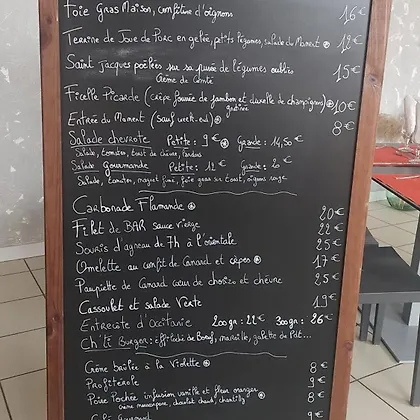 Foie Gras Maison, confiture d'oignons 16€
Terrine de Joue de Porc en gelée, petits légumes, salade du Moment 12€
Saint Jacques poêlées sur sa purée de légumes oubliés 15€
Crème de Comté
Ficelle Picarde (crêpe fourrée de jambon et duxelle de champignons) 10€
gratinée
Entrée du Moment (sauf week-end) 8€
Salade chevrote Petite: 9€ Grande: 14,50€
Salade, tomates, toast de chèvre, lardons
Salade Gourmande Petite: 12€ Grande: 20€
Salade, tomates, magret fumé, foie gras sur toast, oignons rouge
Carbonade Flamande 20€
Filet de BAR sauce vierge 22€
Souris d'agneau de 7h à l'orientale 25€
Omelette au confit de Canard et cèpes 17€
Paupiette de Canard coeur de chorizo et chèvre 25€
Cassoulet et salade Verte 19€
Entrecote d'Occitanie 200gr: 22€ 300gr: 26€
Ch'ti Burger: effiloché de Boeuf, maroille, galette de Pdt...
Crème brulée à la Violette 8€
Profiterole 9€
Poire Pochée infusion vanille et fleur oranger 8€
Crème mascarpone, chocolat chaud, chantilly
Café Gourmand 9€